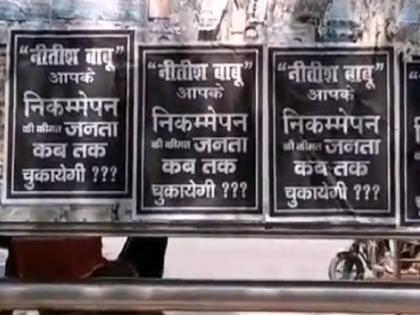 “नीतीश बाबू”
आपके
निकम्मेपन
की कीमत जनता
कब तक
चुकायेगी ???
“नीतीश बाबू”
आपके
निकम्मेपन
की कीमत जनता
कब तक
चुकायेगी ???
“नीतीश बाबू”
आपके
निकम्मेपन
की कीमत जनता
कब तक
चुकायेगी ???